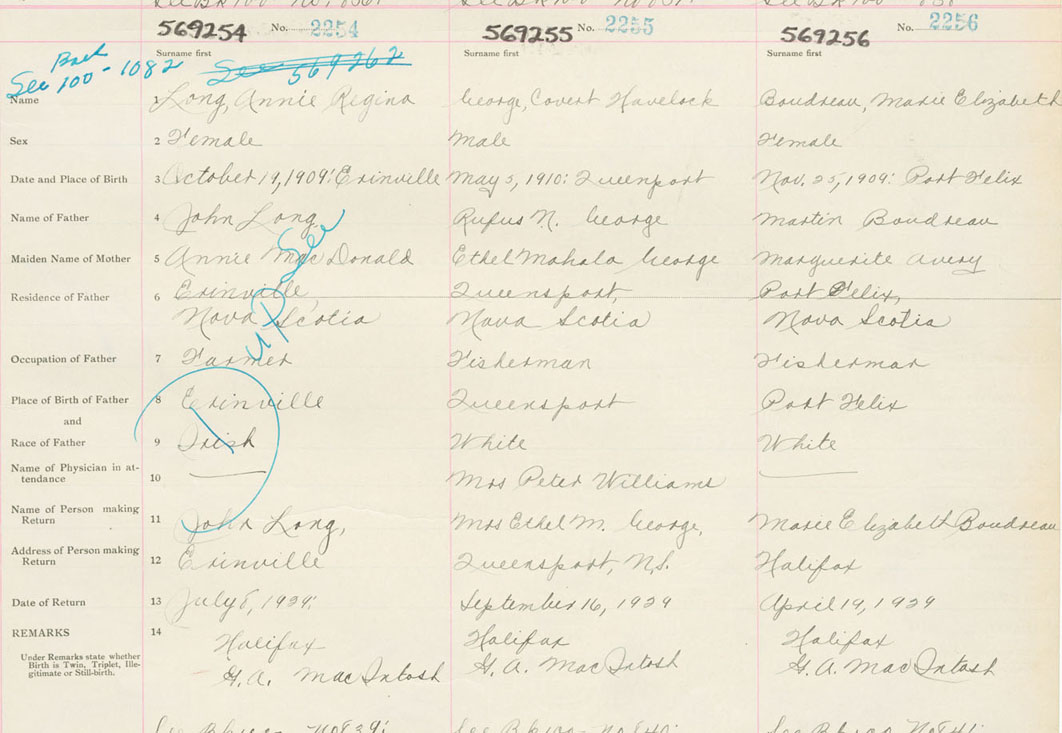 569254 No. 2254
569255 No. 2255
569256 No. 2256
Surname first
Surname first
Surname first
Back
See 100-1082
See 569262
Name 1 Long, Annie Regina
George, Covert Havelock
Boudreau, Marie Elizabeth
Sex 2 Female
Male
Female
Date and Place of Birth 3 October 19, 1909: Erinville
May 5, 1910: Queenport
Nov. 25, 1909: Port Felix
Name of Father 4 John Long
Rufus N. George
Martin Boudreau
See up
Maiden Name of Mother 5 Annie MacDonald
Ethel Mahala George
Marguerite Avery
Residence of Father 6 Erinville,
Nova Scotia
Queensport,
Nova Scotia
Port Felix,
Nova Scotia
Occupation of Father 7 Farmer
Fisherman
Fisherman
Place of Birth of Father 8 Erinville
Queensport
Port Felix
and
Race of Father 9 Irish
White
White
Name of Physician in at-
tendance 10
Mrs Peter Williams
Name of Person making
Return 11 John Long,
Mrs Ethel M. George,
Marie Elizabeth Boudreau
Address of Person making
Return 12 Erinville
Queensport, N.S.
Halifax
Date of Return 13 July 8, 1939:
September 16, 1939
April 19, 1939
REMARKS 14
Under Remarks state whether
Birth is Twin, Triplet, Ille-
gitimate or Still-birth.
Halifax
G. A. MacIntosh
Halifax
G. A. MacIntosh
Halifax
G. A. MacIntosh